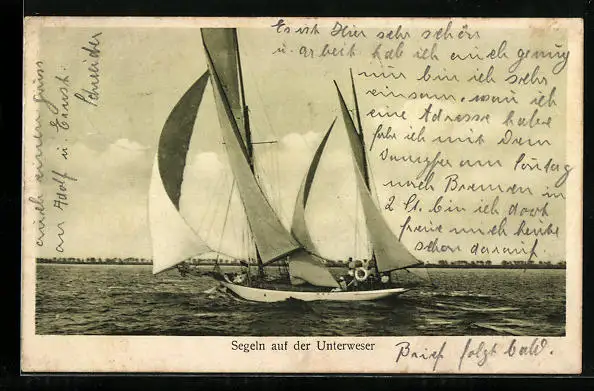 Es ist Hier sehr schön
u. arbeit hab ich auch genug
nur bin ich sehr
einsam. wenn ich
eine Adresse habe
fahr ich mit Dem
Dampfer am Sontag
nach Bremen in
2 St. bin ich dort
freue mich heute
schon darauf.
Brief folgt bald.
auch einen Gruss
an Adolf u. Ernst.
Schneider
Segeln auf der Unterweser